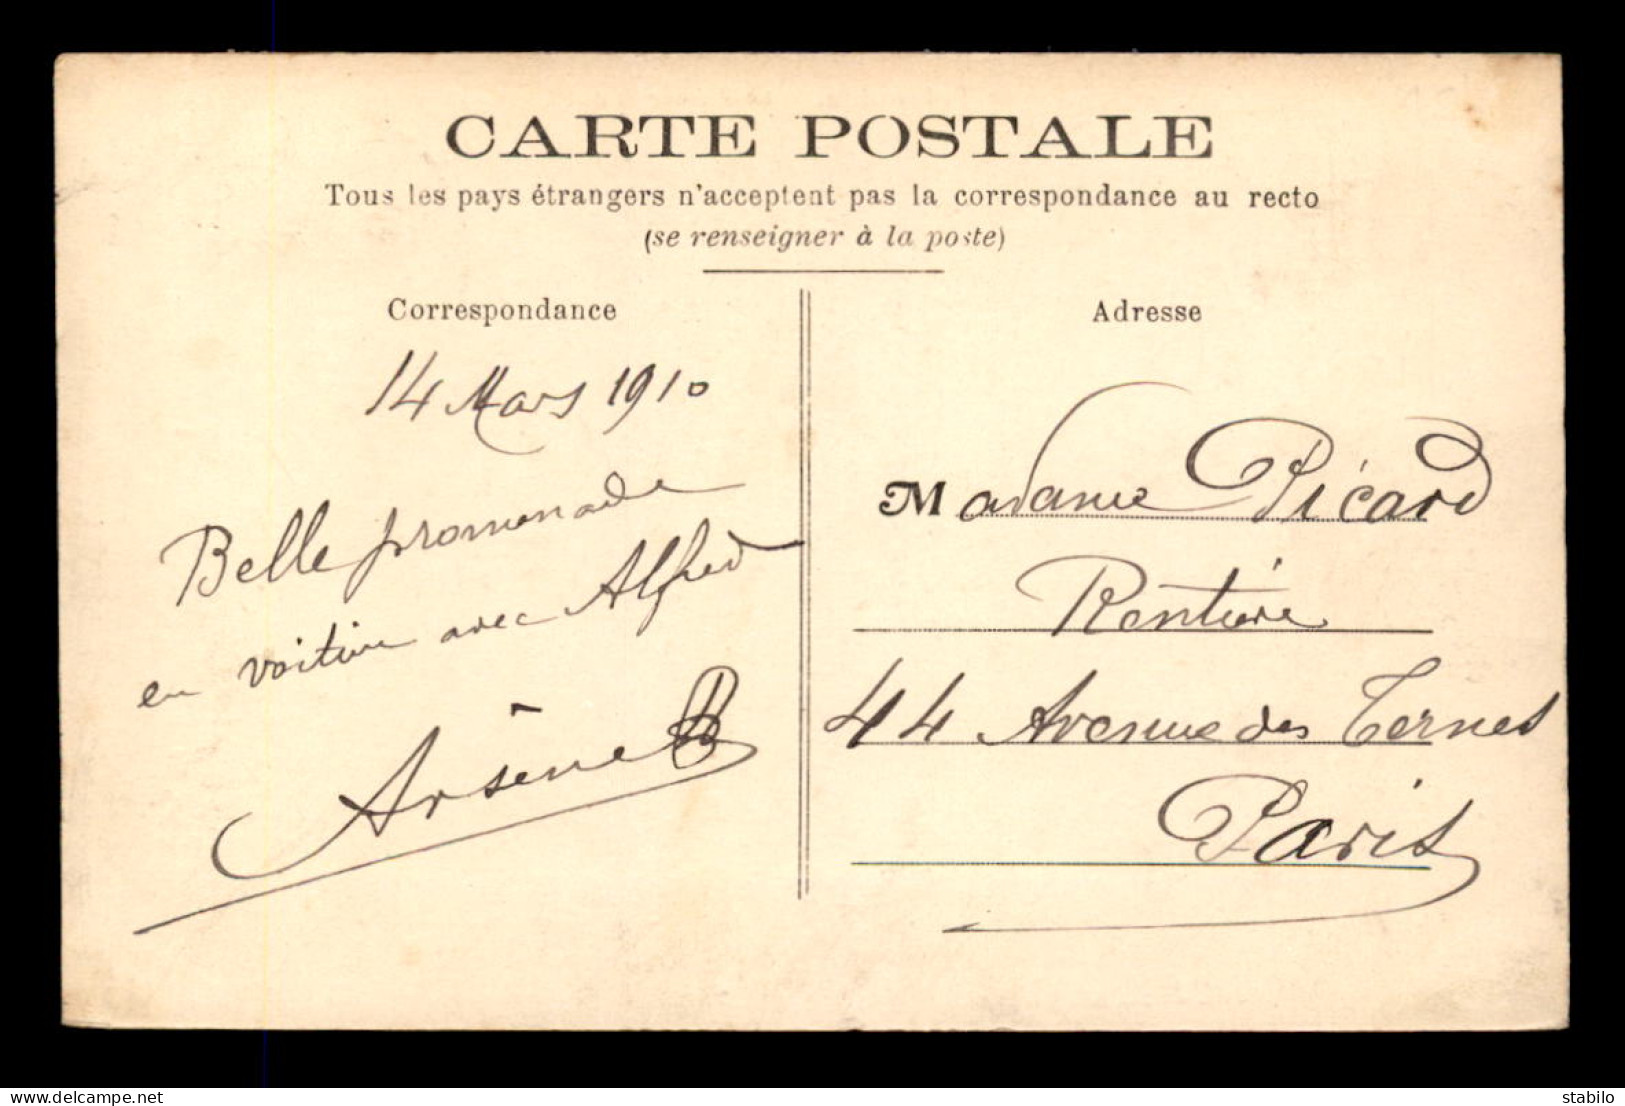 CARTE POSTALE
Tous les pays étrangers n'acceptent pas la correspondance au recto
(se renseigner à la poste)
Correspondance
14 Mars 1910
Belle promenade
en voiture avec Alfred
Arsène
Adresse
Madame Picard
Rentière
44 Avenue des Ternes
Paris
www.delcampe.net
stabilo